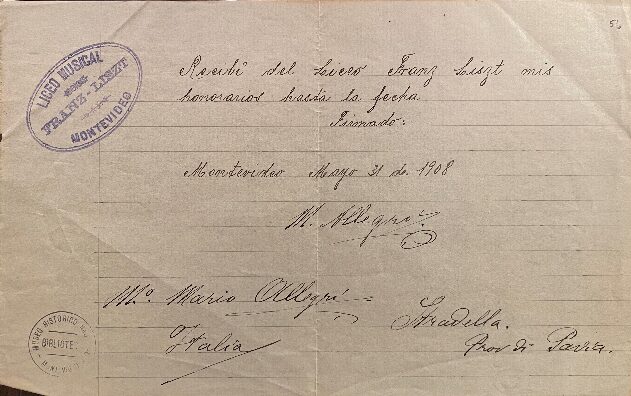 56
LICEO MUSICAL
FRANZ-LISZT
MONTEVIDEO
Recibí del Liceo Franz Liszt mis
honorarios hasta la fecha
Firmado:
Montevideo Mayo 31 de 1908
M. Allegri
Mº. Mario Allegri
Italia
Stradella.
Prov di Pavia.
MUSEO HISTORICO
BIBLIOTECA